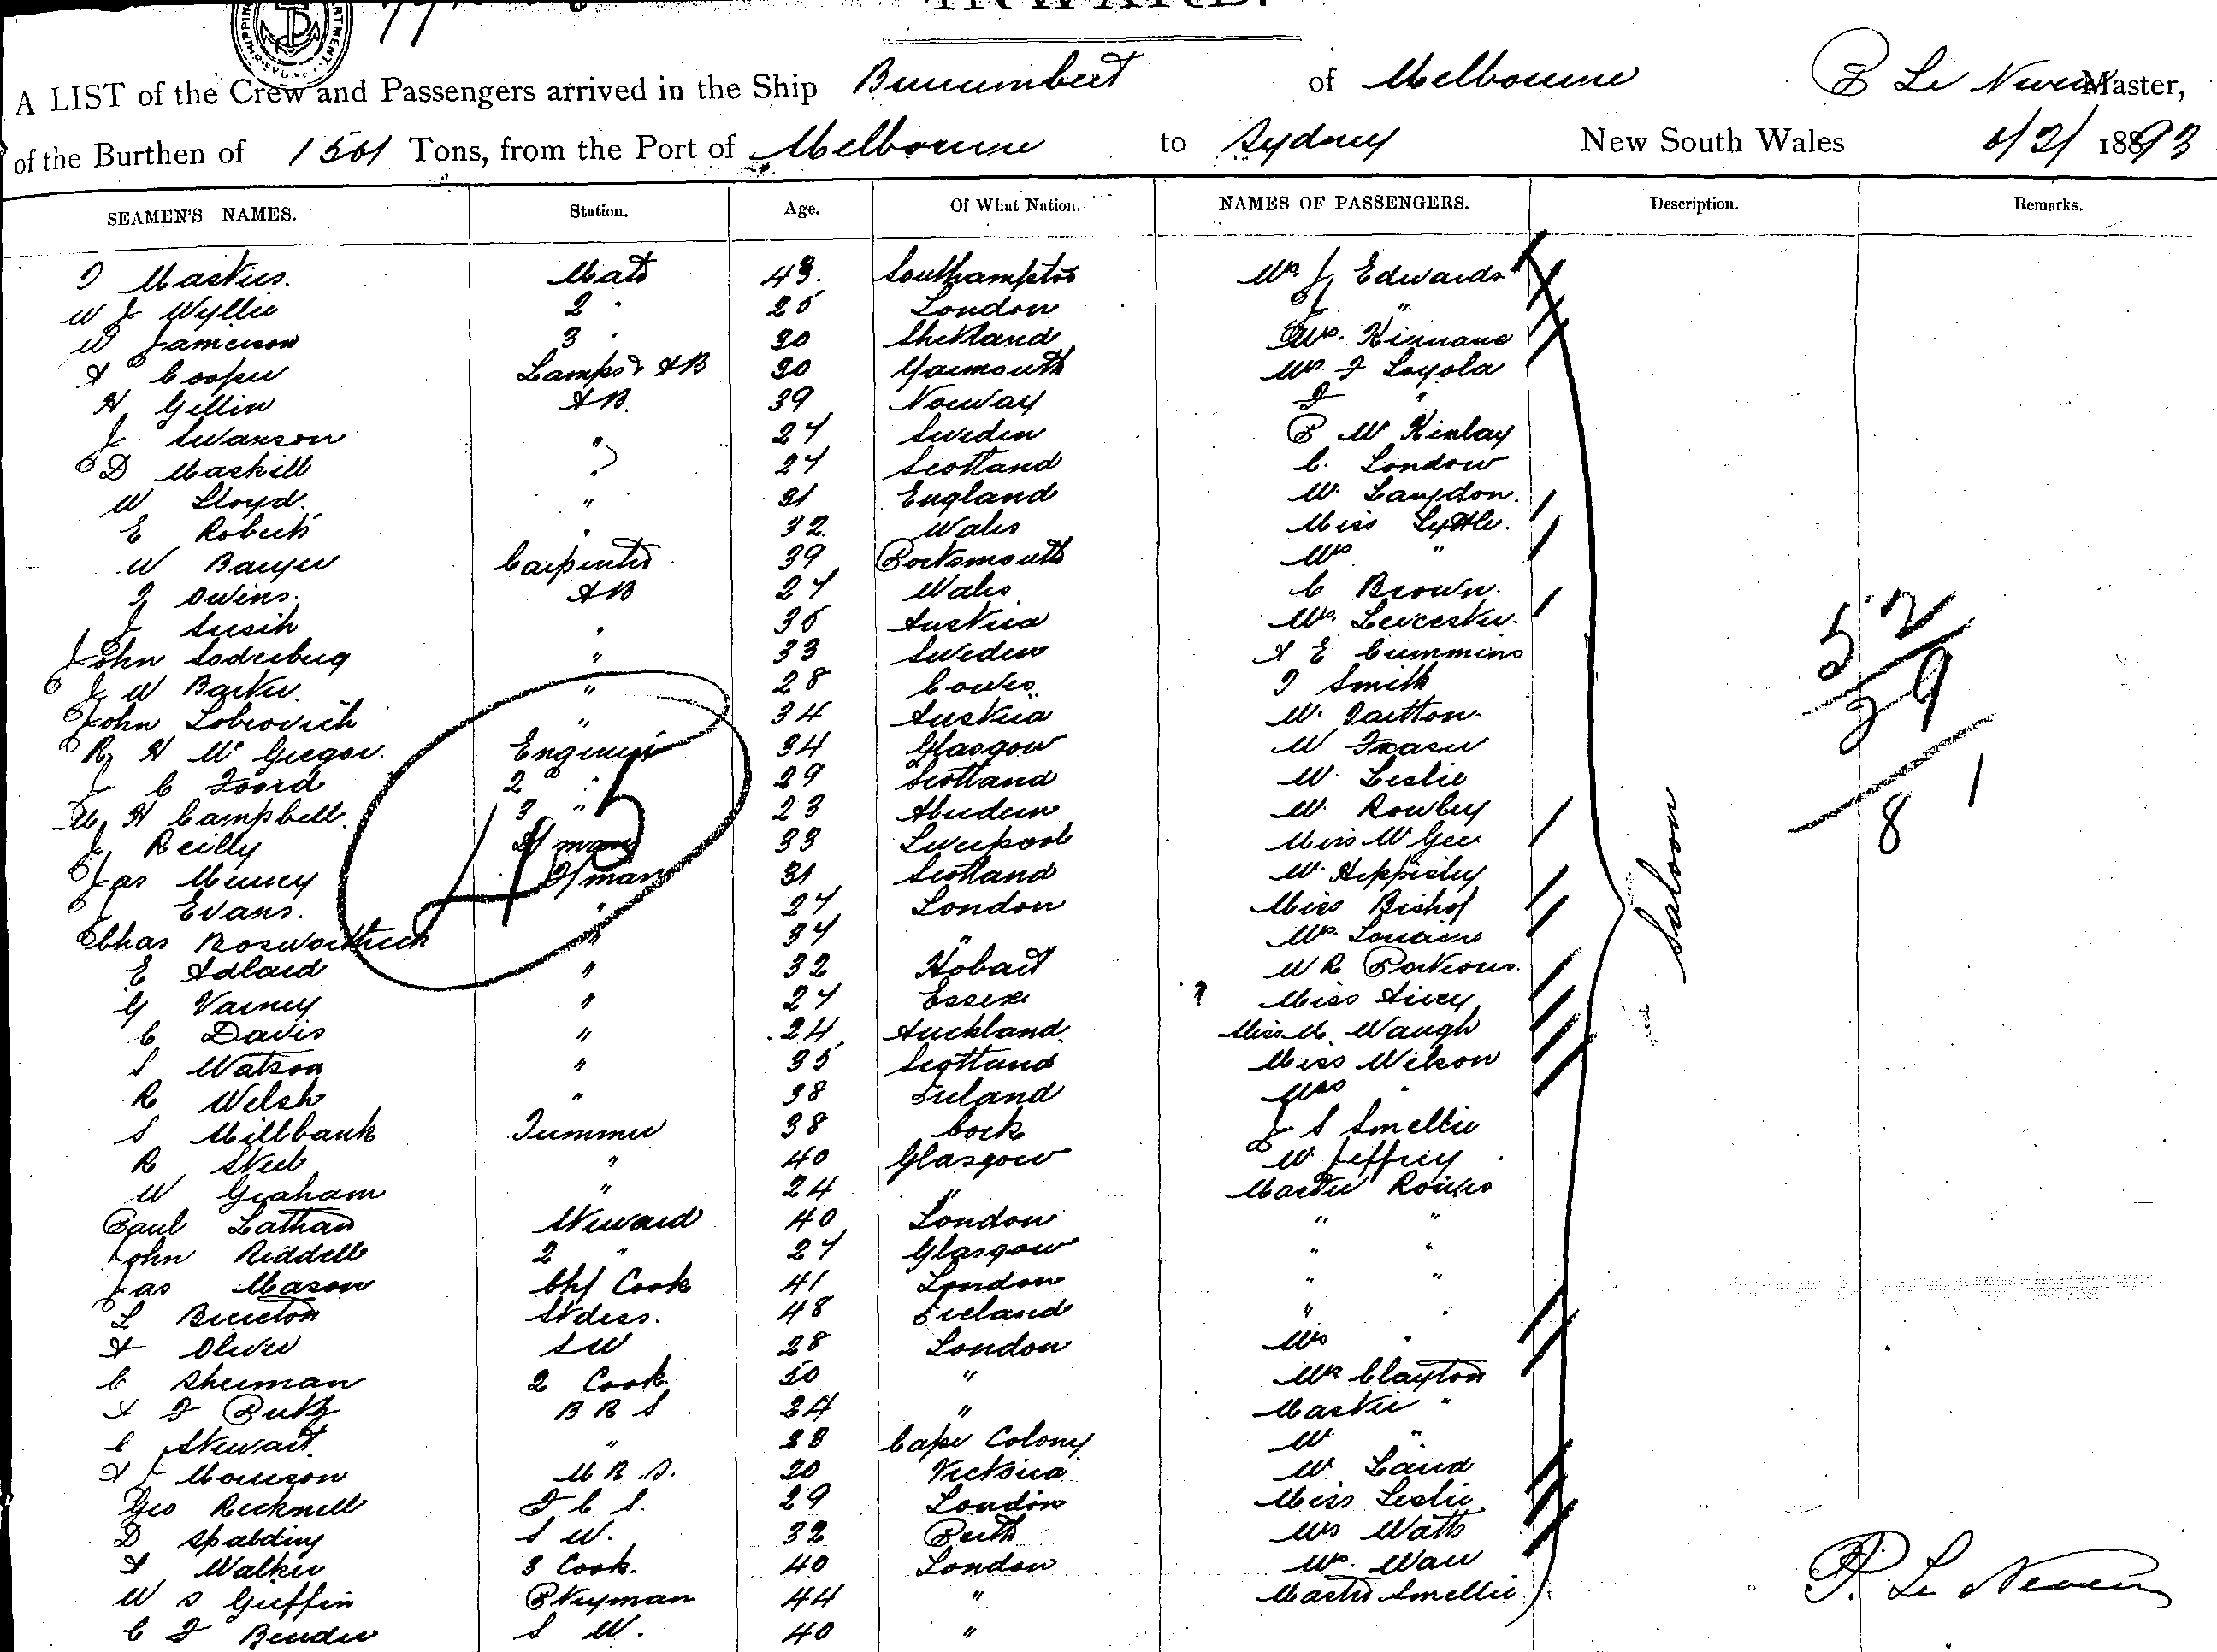 INWARD.
A LIST of the Crew and Passengers arrived in the Ship Burrumbeet of Melbourne P Le Neveu Master,
of the Burthen of Tons, from the Port of Melbourne to Sydney New South Wales 1893
SEAMEN'S NAMES. Station. Age. Of What Nation. NAMES OF PASSENGERS. Description. Remarks.
Mate 43. Southampton Mrs J Edwards
W J Wyllie 2 " 25 London J "
W Jamerson 3 " 30 Shetland Mrs. Kinnane
A Cooper Lamps & AB 30 Yarmouth Mrs F Loyola
H Gillin AB. 39 Norway F "
J Swanson " 27 Sweden P McKinlay
D Mackill " 27 Scotland C. London
W Lloyd. " 31 England W. Langdon.
E Roberts " 32 Wales Miss Lyttle.
W Carpenter 39 Portsmouth Mrs "
J Owens. AB 27 Wales C Brown.
J Susih " 35 Austria Mrs. Leicester.
John Soderberg " 33 Sweden A E Cummins
J W Barker. " 28 Cowes T Smith
John Lobrovich " 34 Austria W.
R H McGregor. Engineer 34 Glasgow W Fraser
J C Foord 2 " 29 Scotland W. Leslie
H Campbell. 3 " 23 Aberdeen W. Rowley
J Reilly D/man 33 Liverpool Miss McGee
Jas Murrey F/man 31 Scotland W. Hippisley
J Evans. " 27 London Miss Bishop
Chas " 34 " Mrs Lorraine
E Adlard " 32 Hobart W R Porteous.
G Varney " 27 Essex Miss Airey
C Davis " 24 Auckland. Miss M. Waugh
S Watson " 35 Scotland Miss Wilson
R Welsh " 38 Ireland Mrs "
S Millbank Trimmer 38 Cork J S Smellie
R Steel " 40 Glasgow W Jeffrey
W Graham " 24 " Master
Paul Latham Steward 40 London " "
John Riddell 2 " 27 Glasgow " "
Jas Mason Chf Cook 41 London " "
L Brereton Stdess. 48 Ireland " "
A Oliver S W 28 London Mrs "
C Sherman 2 Cook 50 " Mrs Clayton
A F B R S 24 " Master "
C Stewart " 28 Cape Colony W "
A J Morrison M R S. 20 Victoria W. Laird
Geo Recknell F C S. 29 London Miss Leslie
D Spalding S W. 32 Perth Mrs Watts
A Walker 3 Cook. 40 London Mrs. Warr
W S Griffin P Keyman 44 " Master Smellie
C F Bender S W. 40 "
45
Saloon
52
29
81
P. Le Neveu